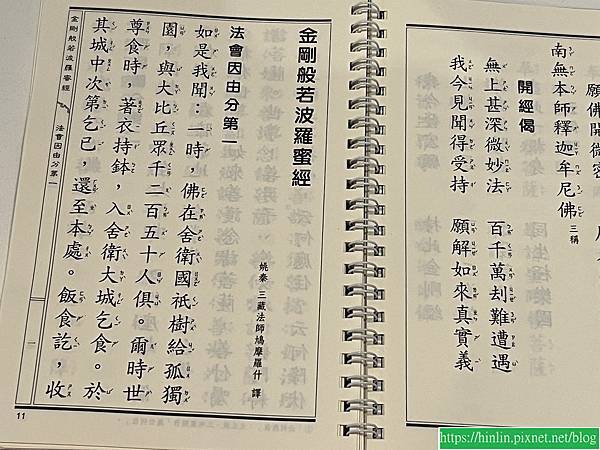 願佛開微密
南無本師釋迦牟尼佛 三稱
開經偈
無上甚深微妙法 百千萬刦難遭遇
我今見聞得受持 願解如來真實義
金剛般若波羅蜜經
姚秦 三藏法師鳩摩羅什 譯
法會因由分第一
如是我聞：一時，佛在舍衛國祇樹給孤獨
園，與大比丘眾千二百五十人俱。爾時世
尊食時，著衣持鉢，入舍衛大城乞食。於
其城中次第乞已，還至本處。飯食訖，收
金剛般若波羅蜜經 法會因由分第一
一
11
https://hinlin.pixnet.net/blog